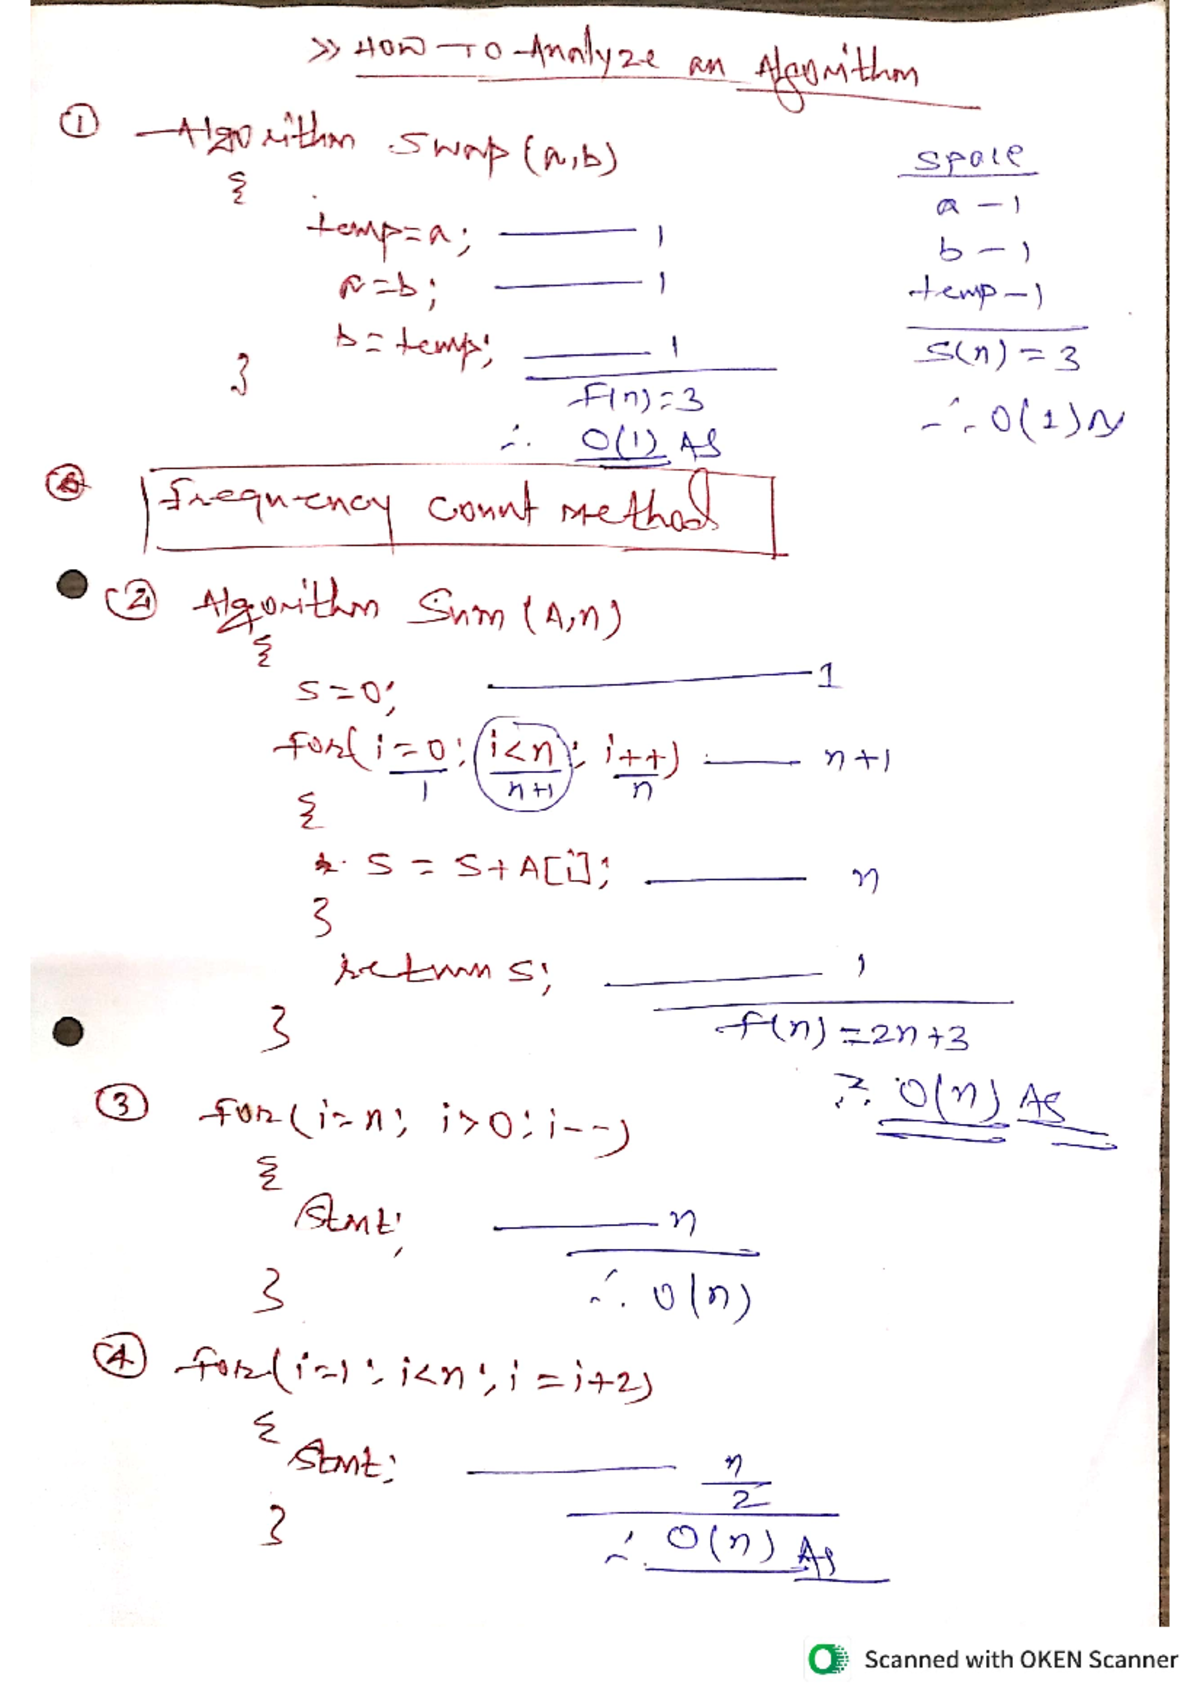 >> HOW-TO-Analyze an Algorithm
① Algorithm Swap (a,b)
{
temp=a; —— 1
a=b; —— 1
b=temp; —— 1
}
f(n)=3
∴ O(1) As
space
a - 1
b - 1
temp - 1
S(n) = 3
∴ O(1)
frequency count Method
② Algorithm Sum (A,n)
{
S=0; —— 1
for(i=0; i<n; i++) —— n+1
1 n+1 n
{
S = S+A[i]; —— n
}
return s; —— 1
}
f(n)=2n+3
∴ O(n) As
③ for(i=n; i>0; i--)
{
Stmt; —— n
}
∴ O(n)
④ for(i=1; i<n; i=i+2)
{
Stmt; —— n/2
}
∴ O(n) As
Scanned with OKEN Scanner